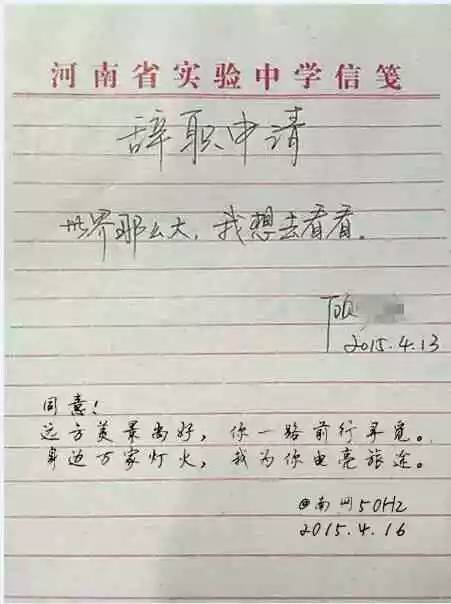 河南省实验中学信笺
辞职申请
世界那么大，我想去看看。
顾
2015.4.13
同意！
远方美景尚好，你一路前行寻觅。
身边万家灯火，我为你电亮旅途。
@南网50Hz
2015.4.16